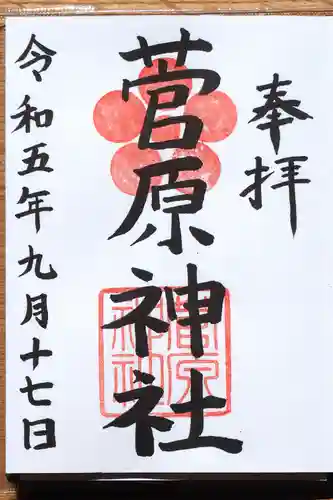 奉拝
菅原神社
菅原神社
令和五年九月十七日